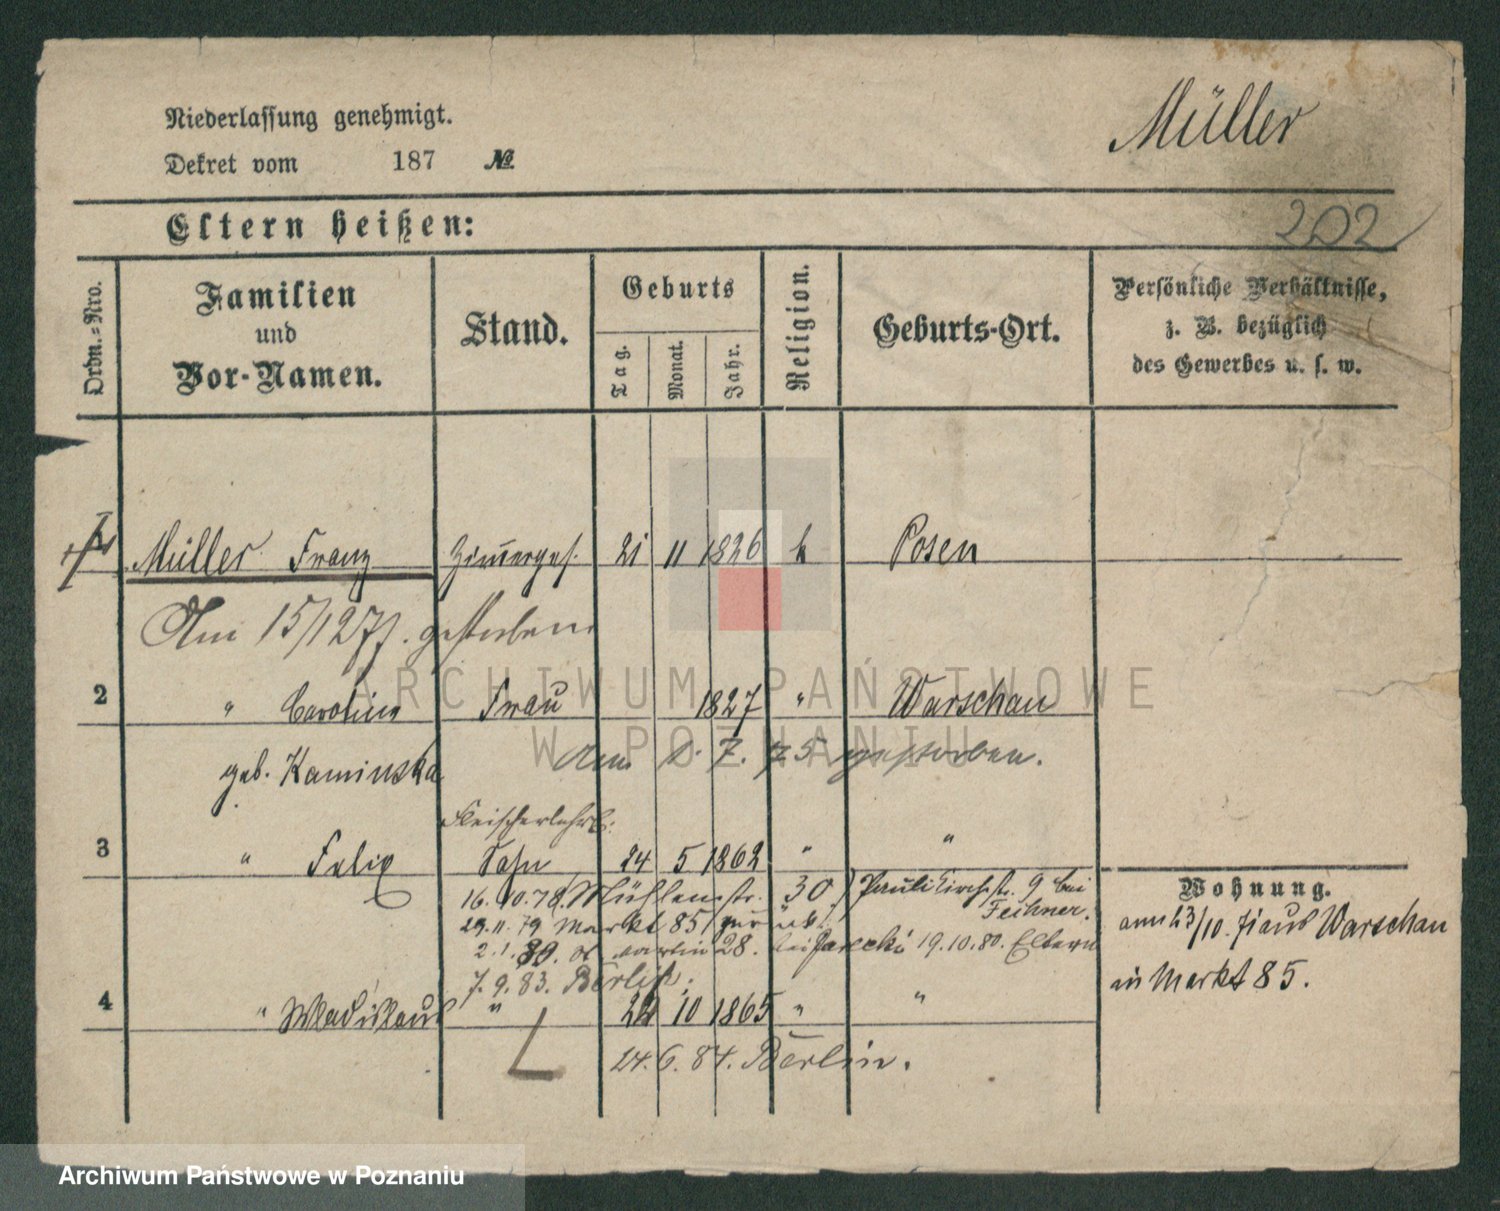 Niederlassung genehmigt.
Müller
Dekret vom 187 №
Eltern heißen:
202
Ordn.-Nro.
Familien
und
Vor-Namen.
Stand.
Geburts
Tag.
Monat.
Jahr.
Religion.
Geburts-Ort.
Persönliche Verhältnisse,
z. B. bezüglich
des Gewerbes u. s. w.
Müller Franz Zimmerges. 21 11 1826 k Posen
Am 15/12 77. gestorben
2 " Carolina Frau 1827 " Warschau
geb. Kaminska Am 2. 7. 75 gestorben.
Fleischerlehrl.
3 " Felix Sohn 24 5 1862 " "
16. 10. 78. Mühlenstr. 30 / Paulikirchstr. 9 bei
Feihner.
29. 11. 79 Markt 85 / zurück.
2. 1. 80. St. Martin 28. bei Jarecki 19. 10. 80. Eltern
7. 9. 83. Berlin.
4 " Wladislaus " 22 10 1865 " "
24. 6. 84. Berlin.
Wohnung.
am 23/10. 71 aus Warschau
in Markt 85.
ARCHIWUM PAŃSTWOWE
W POZNANIU
Archiwum Państwowe w Poznaniu